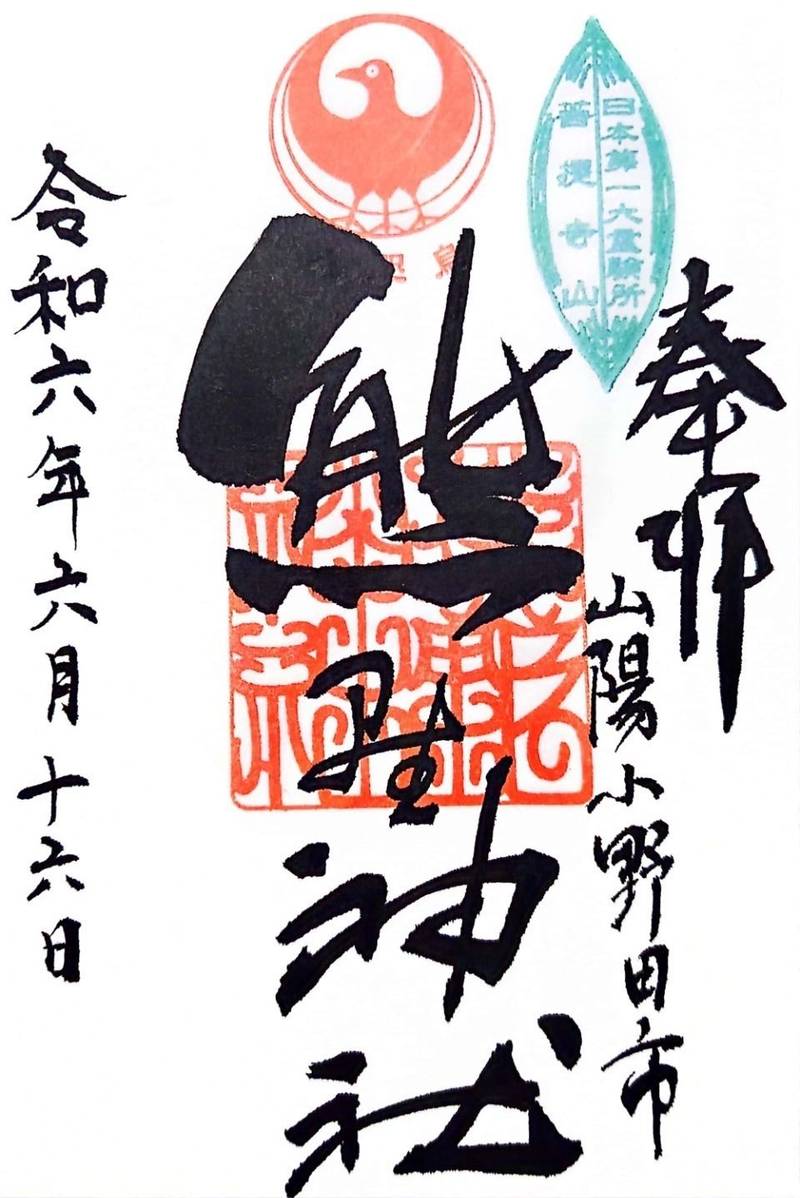 奉拝
山陽小野田市
日本第一大霊験所
菩提寺山
熊野神社
令和六年六月十六日